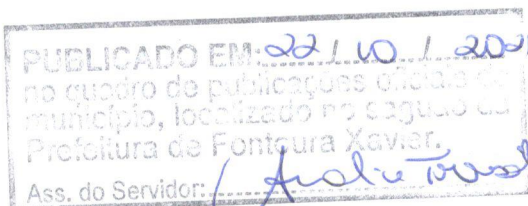 PUBLICADO EM: 22 / 10 / 202
no quadro de publicações oficiais do
município, localizado no saguão da
Prefeitura de Fontoura Xavier.
Ass. do Servidor: